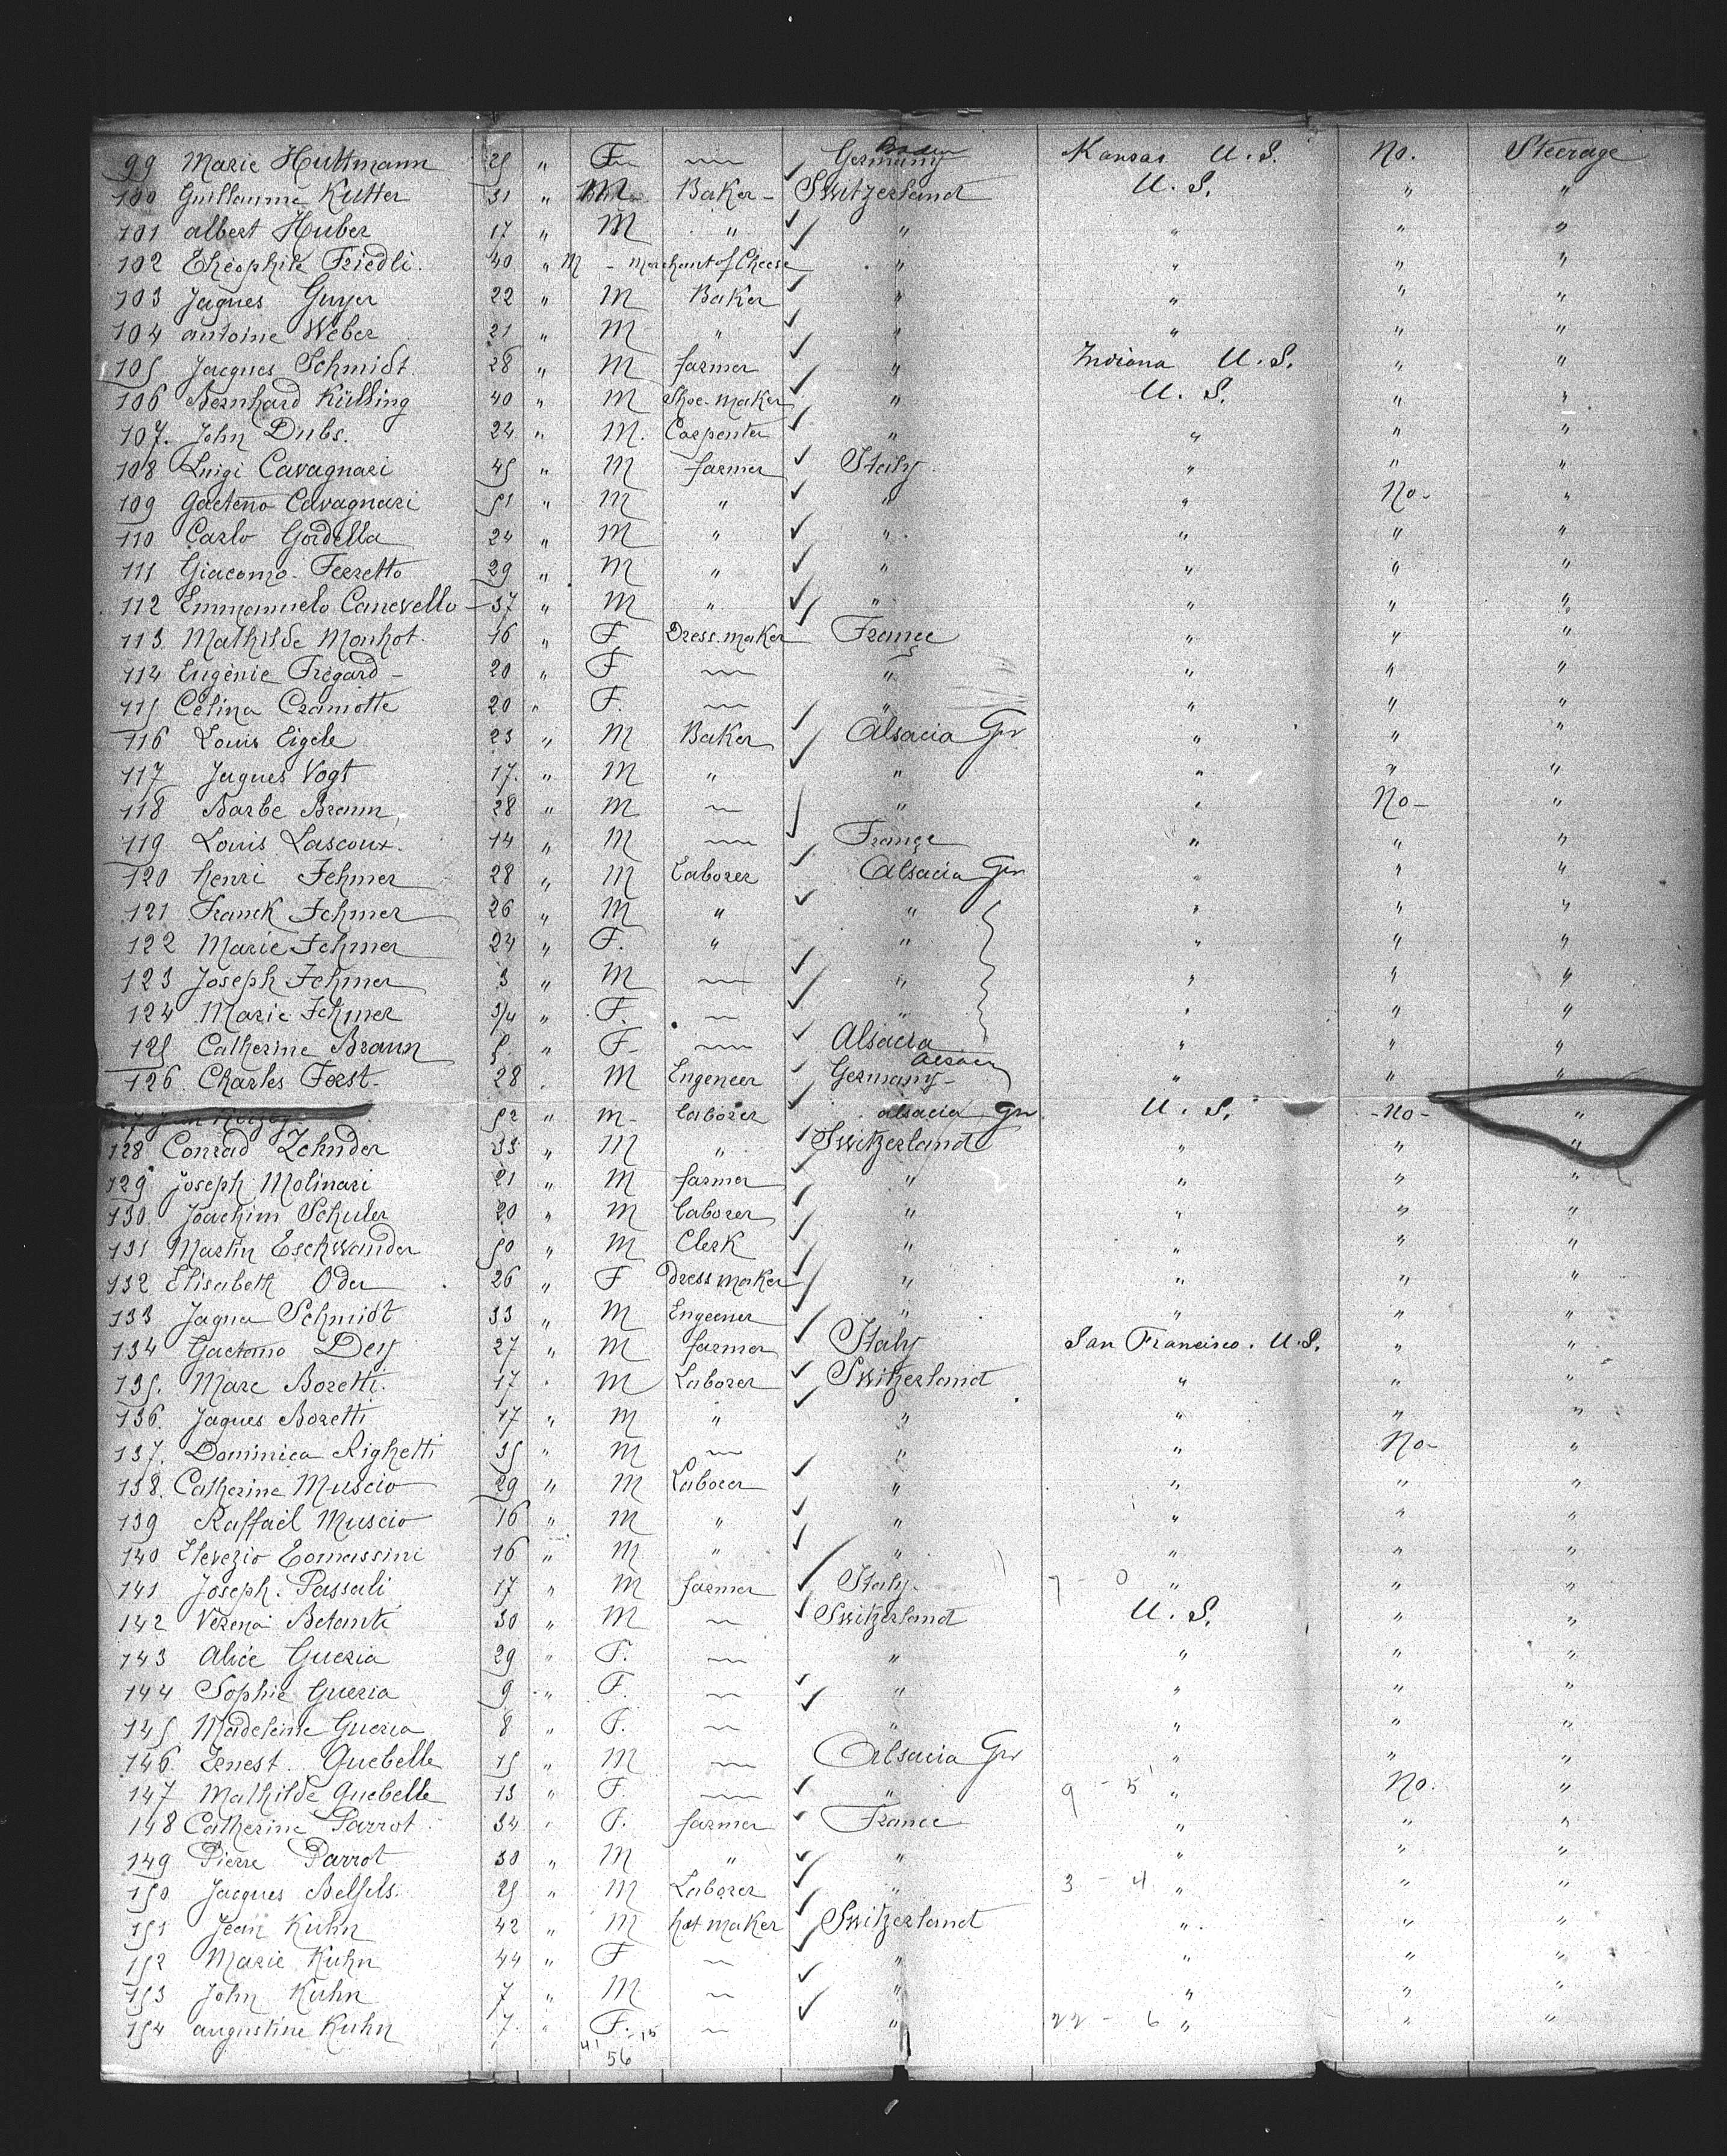 99 Marie Huttmann 25 " F ~ Germany Baden Kansas U.S. No. Steerage
100 Guillaume Kutter 31 " M Baker - Switzerland U.S. " "
101 Albert Huber 17 " M " " " " "
102 Théophile Friedli. 40 " M - Merchant of Cheese " " " "
103 Jaques Guyer 22 " M Baker " " " "
104 Antoine Weber 21 " M " " " " "
105 Jacques Schmidt. 28 " M farmer " Indiana U.S. " "
106 Bernhard Külling 40 " M Shoe-maker " U.S. " "
107. John Dubs. 24 " M. Carpenter " " " "
108 Luigi Cavagnari 45 " M farmer Italy " " "
109 Gaetano Cavagnari 51 " M " " " No- "
110 Carlo Gordella 24 " M " " " " "
111 Giacomo Ferretto 29 " M " " " " "
112 Emmanuelo Canevello - 37 " M " " " " "
113 Mathilde Monhot. 16 " F Dress.maker France " " "
114 Eugénie Trégard - 20 " F ~ " " " "
115 Célina Craniotte 20 " F. ~ " " " "
116 Louis Eigele 23 " M Baker Alsacia Gr " " "
117 Jaques Vogt 17. " M " " " " "
118 Barbe Braun 28 " M ~ " " No- "
119 Louis Lascoux. 14 " M ~ France " " "
120 henri Fehmer 28 " M Laborer Alsacia Gr " " "
121 Franck Fehmer 26 " M " " " " "
122 Marie Fehmer 24 " F. " " " " "
123 Joseph Fehmer 3 " M ~ " " " "
124 Marie Fehmer 3/4 " F. ~ " " " "
125 Catherine Braun 5. " F- ~ Alsacia " " "
126. Charles Forst- 28 . M Engeneer Germany - Alsace " " "
52 " M- laborer alsacia Gr U.S. -No- "
128 Conrad Zehnder 33 " M " Switzerland " " "
129 Joseph Molinari 21 " M farmer " " " "
130 Joachim Schuler 20 " M laborer " " " "
131 Martin Eschwander 50 " M Clerk " " " "
132 Elisabeth Oder 26 " F Dress maker " " " "
133 Jaques Schmidt 33 " M Engeener " " " "
134 Gaetano Dey 27 " M farmer Italy San Francisco. U.S. " "
135. Marc Boretti. 17 " M Laborer Switzerland " " "
136. Jaques Boretti 17 " M " " " " "
137. Dominica Righetti 35 " M ~ " " No- "
138. Catherine Muscio 29 " M Laborer " " " "
139 Raffaël Muscio 16 " M " " " " "
140 Elevezio Tomassini 16 " M " " " " "
141 Joseph. Passali 17 " M farmer Italy. 7 - 0 " " "
142 Verena Betanti 30 " M ~ Switzerland U.S. " "
143 Alice Gueria 29 " F. ~ " " " "
144 Sophie Gueria 9 " F. ~ " " " "
145 Madeleine Gueria 8 " F. ~ " " " "
146. Ernest. Quebelle 15 " M ~ Alsacia Gr " " "
147 Mathilde Quebelle 13 " F. ~ " 9 - 5 " No. "
148 Catherine Parrot 34 " F. farmer France " " "
149 Pierre Parrot 30 " M " " " " "
150 Jacques Belfils. 25 " M Laborer " 3 - 4 " " "
151 Jean Kuhn 42 " M hat maker Switzerland " " "
152 Marie Kuhn 44 " F ~ " " " "
153 John Kuhn 7 " M ~ " " " "
154 augustine Kuhn 7. " F. ~ " 22 - 6 " " "
41 - 15
56